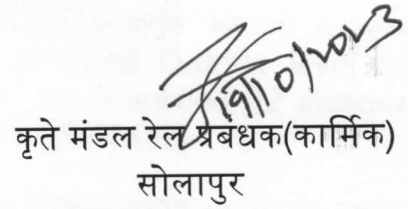 19/10/2023
कृते मंडल रेल प्रबंधक(कार्मिक)
सोलापुर